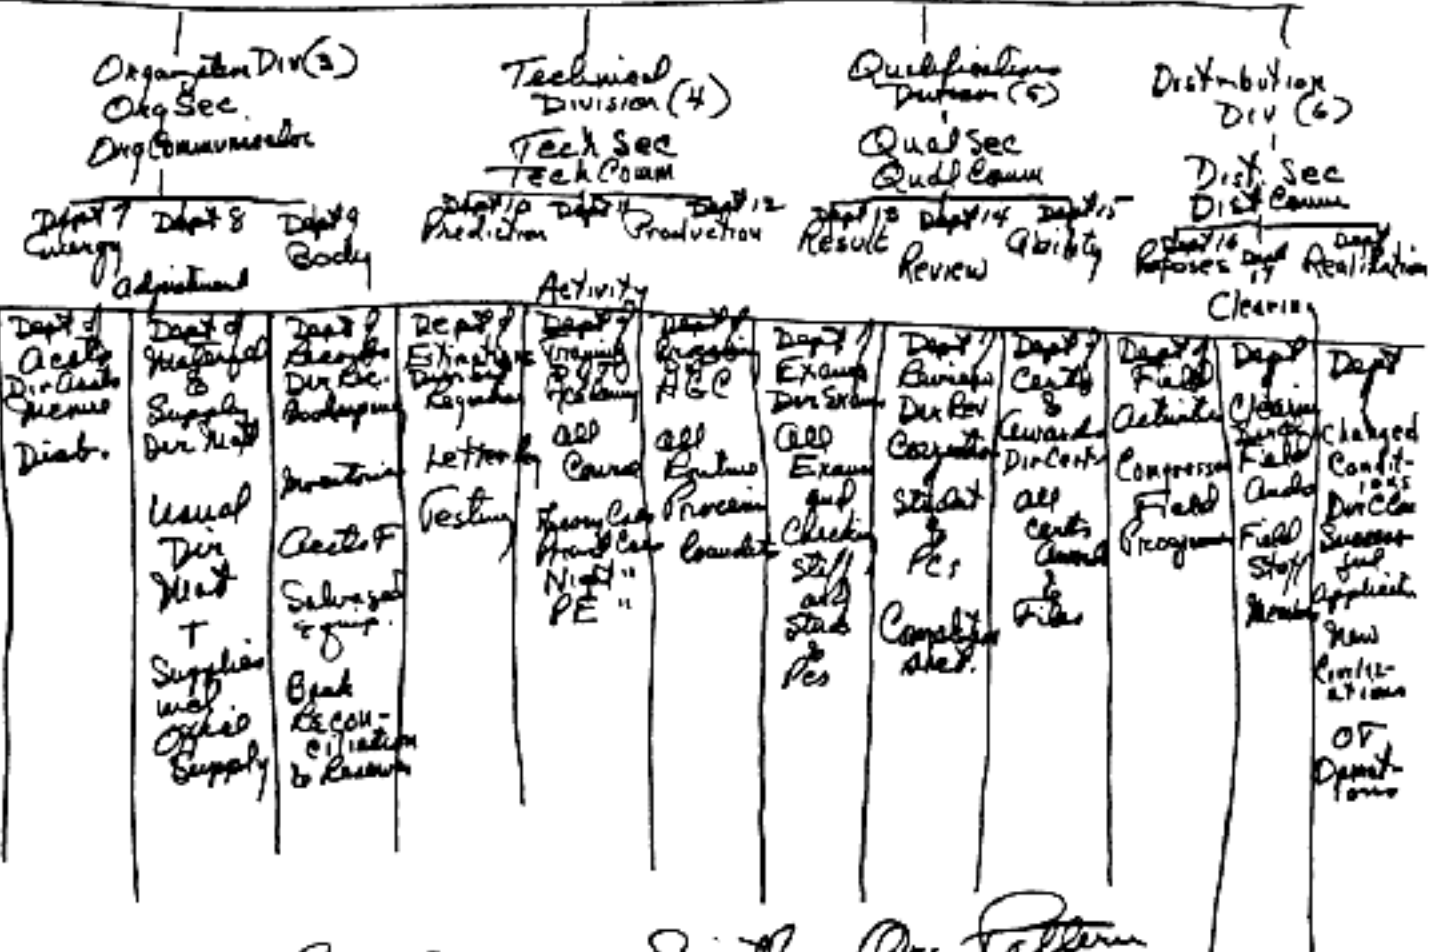 Organization Div (3)
Org Sec.
Org Communicator
Dept 7
Energy
Dept 8
Adjustment
Dept 9
Body
Technical
Division (4)
Tech Sec
Tech Comm
Dept 10
Prediction
Dept 11
Activity
Dept 12
Production
Qualifications
Division (5)
Qual Sec
Qual Comm
Dept 13
Result
Dept 14
Review
Dept 15
Ability
Distribution
Div (6)
Dist. Sec
Dist Comm
Dept 16
Purposes
Dept
17
Clearing
Dept
Realization
Dept of
Accts
Dir Accts
Disb.
Dept of
Material
&
Supply
Dir Mat
Usual
Dir
Mat
+
Supplies
incl
Supply
Dept of
Records
Dir Rec.
Inventories
Accts F
Salvaged
Equip.
Bank
Recon-
ciliation
& Reserves
Dept of
Registrar
Letter Reg
Testing
Dept of
Training
Academy
All
Courses
Night "
PE "
Dept of
Processing
HGC
All
Routine
Processing
Dept of
Exams
Dir Exams
All
Exams
and
Checking
Staff
and
Studs
&
Pcs
Dept of
Review
Dir Rev
Cognition
Student
&
Pcs
Dept of
Certs
&
Awards
Dir Certs
All
Certs
Award
&
Files
Dept of
Field
Activities
Field
Programs
Dept
Clearing
Field
Auds
Field
Staff
Members
Dept
Changed
Condit-
ions
Dir Clear
Success-
ful
Applicatn
New
Civiliz-
ations
OT
Operat-
ions
Org Pattern